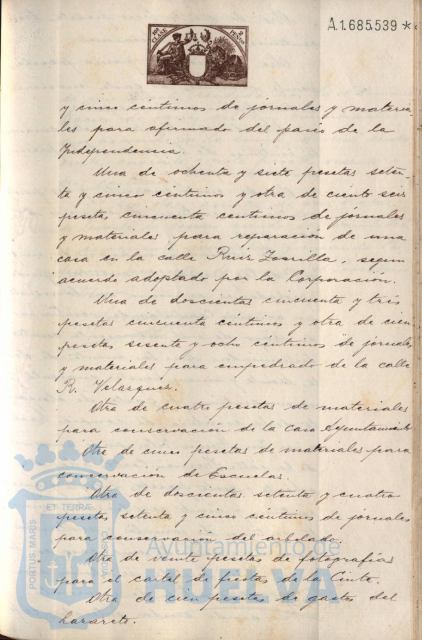 A.1.685.539 *
y cinco céntimos de jornales y materia-
les para afirmado del paseo de la
Independencia.
Una de ochenta y siete pesetas seten-
ta y cinco céntimos y otra de ciento seis
pesetas cincuenta céntimos de jornales
y materiales para reparación de una
casa en la calle Ruiz Zorrilla, segun
acuerdo adoptado por la Corporación.
Una de doscientas cincuenta y tres
pesetas cincuenta céntimos y otra de cien
pesetas sesenta y ocho céntimos de jornales
y materiales para empedrado de la calle
R. Velazquez.
Otra de cuatro pesetas de materiales
para conservación de la casa Ayuntamiento
Otra de cinco pesetas de materiales para
conservación de Escuelas.
Otra de doscientas setenta y cuatro
pesetas setenta y cinco céntimos de jornales
para conservación del arbolado.
Otra de veinte pesetas de fotografías
para el cartel de fiestas de la Cinta.
Otra de cien pesetas de gastos del
Lazareto.
PORTUS MARIS
ET TERRÆ
Ayuntamiento de
HUELVA